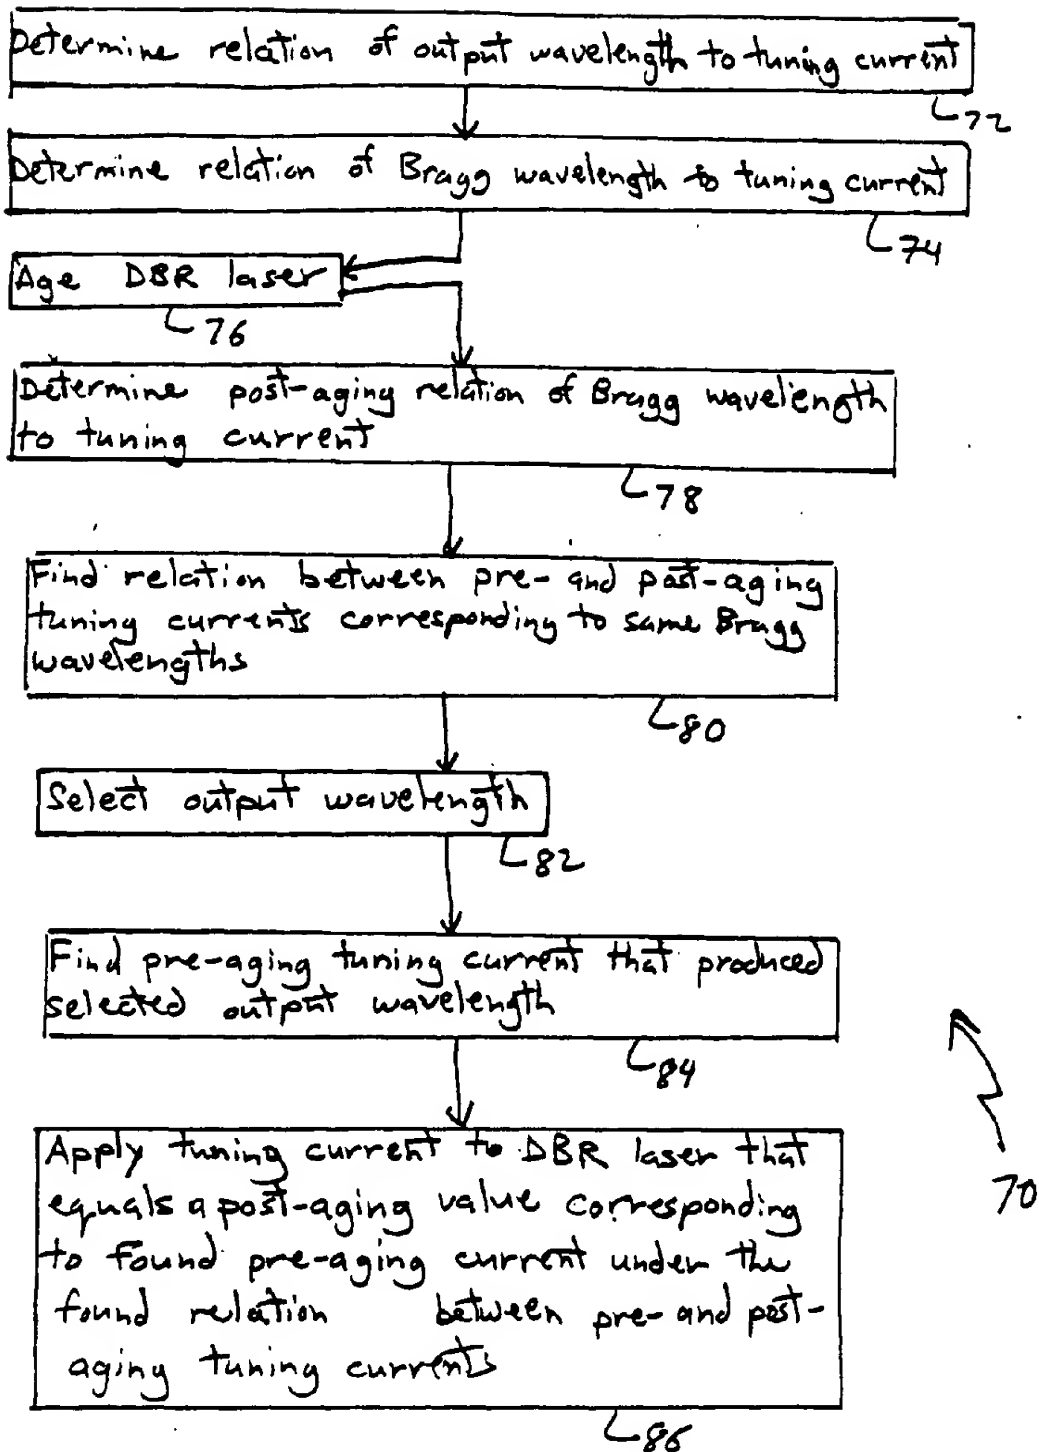 Determine relation of output wavelength to tuning current
72
Determine relation of Bragg wavelength to tuning current
74
Age DBR laser
76
Determine post-aging relation of Bragg wavelength
to tuning current
78
Find relation between pre- and post-aging
tuning currents corresponding to same Bragg
wavelengths
80
Select output wavelength
82
Find pre-aging tuning current that produced
selected output wavelength
84
70
Apply tuning current to DBR laser that
equals a post-aging value corresponding
to found pre-aging current under the
found relation between pre- and post-
aging tuning currents
86